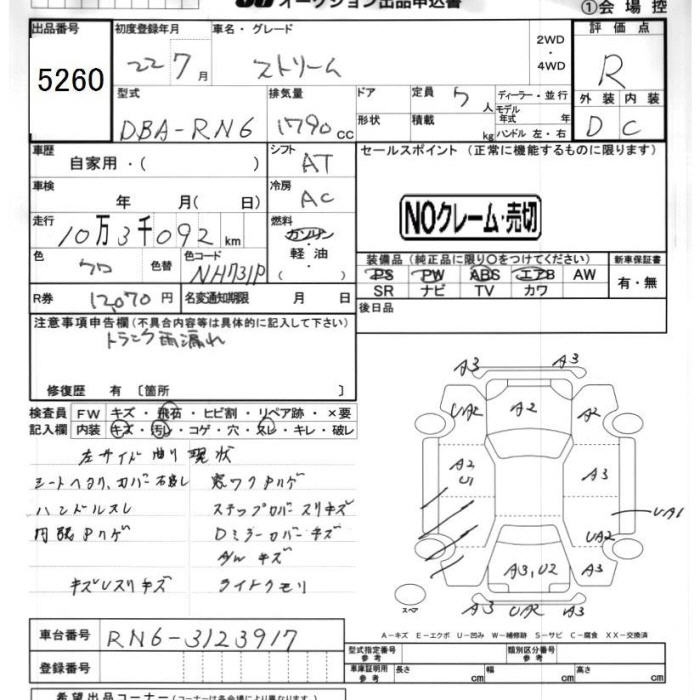 オークション出品申込書
①会場控
出品番号 初度登録年月 車名・グレード 評価点
5260 22 7月 ストリーム 2WD・4WD R
型式 排気量 ドア形状 定員 5人 ディーラー・並行 外装 内装
DBA-RN6 1790cc 積載 kg モデル年式 年 ハンドル 左・右 D C
車歴 自家用・( ) シフト AT セールスポイント (正常に機能するものに限ります)
車検 年 月( 日) 冷房 AC
NOクレーム・売切
走行 10万3千092km 燃料 ガソリン・軽油 ( )
色 クロ 色替 色コード NH731P
装備品(純正品に限り○をつけてください) 新車保証書
PS PW ABS エアB AW 有・無
SR ナビ TV カワ
R券 12,070円 名変通知期限 月 日 後日品
注意事項申告欄(不具合内容等は具体的に記入して下さい)
トランク雨漏れ
修復歴 有 〔箇所 〕
検査員 FW キズ・飛石・ヒビ割・リペア跡・×要
記入欄 内装 キズ・汚レ・コゲ・穴・スレ・キレ・破レ
左サイド曲り現状
ハンドルスレ ステップカバースリキズ
内張ハゲ Dミラーカバーキズ
A/Wキズ
キズUスリキズ ライトクモリ
A3 A3
UA2 A2 A2
A2 U1 A3
UA1
UA2
A3,U2 A3
A3 UA2 A3
スペア
A－キズ E－エクボ U－凹み W－補修跡 S－サビ C－腐食 XX－交換済
車台番号 RN6-3123917
型式指定番号 参考 類別区分番号 参考
登録番号 車庫証明用 参考 長さ cm 幅 cm 高さ cm
希望出品コーナー(コーナーは各会場により異なります)